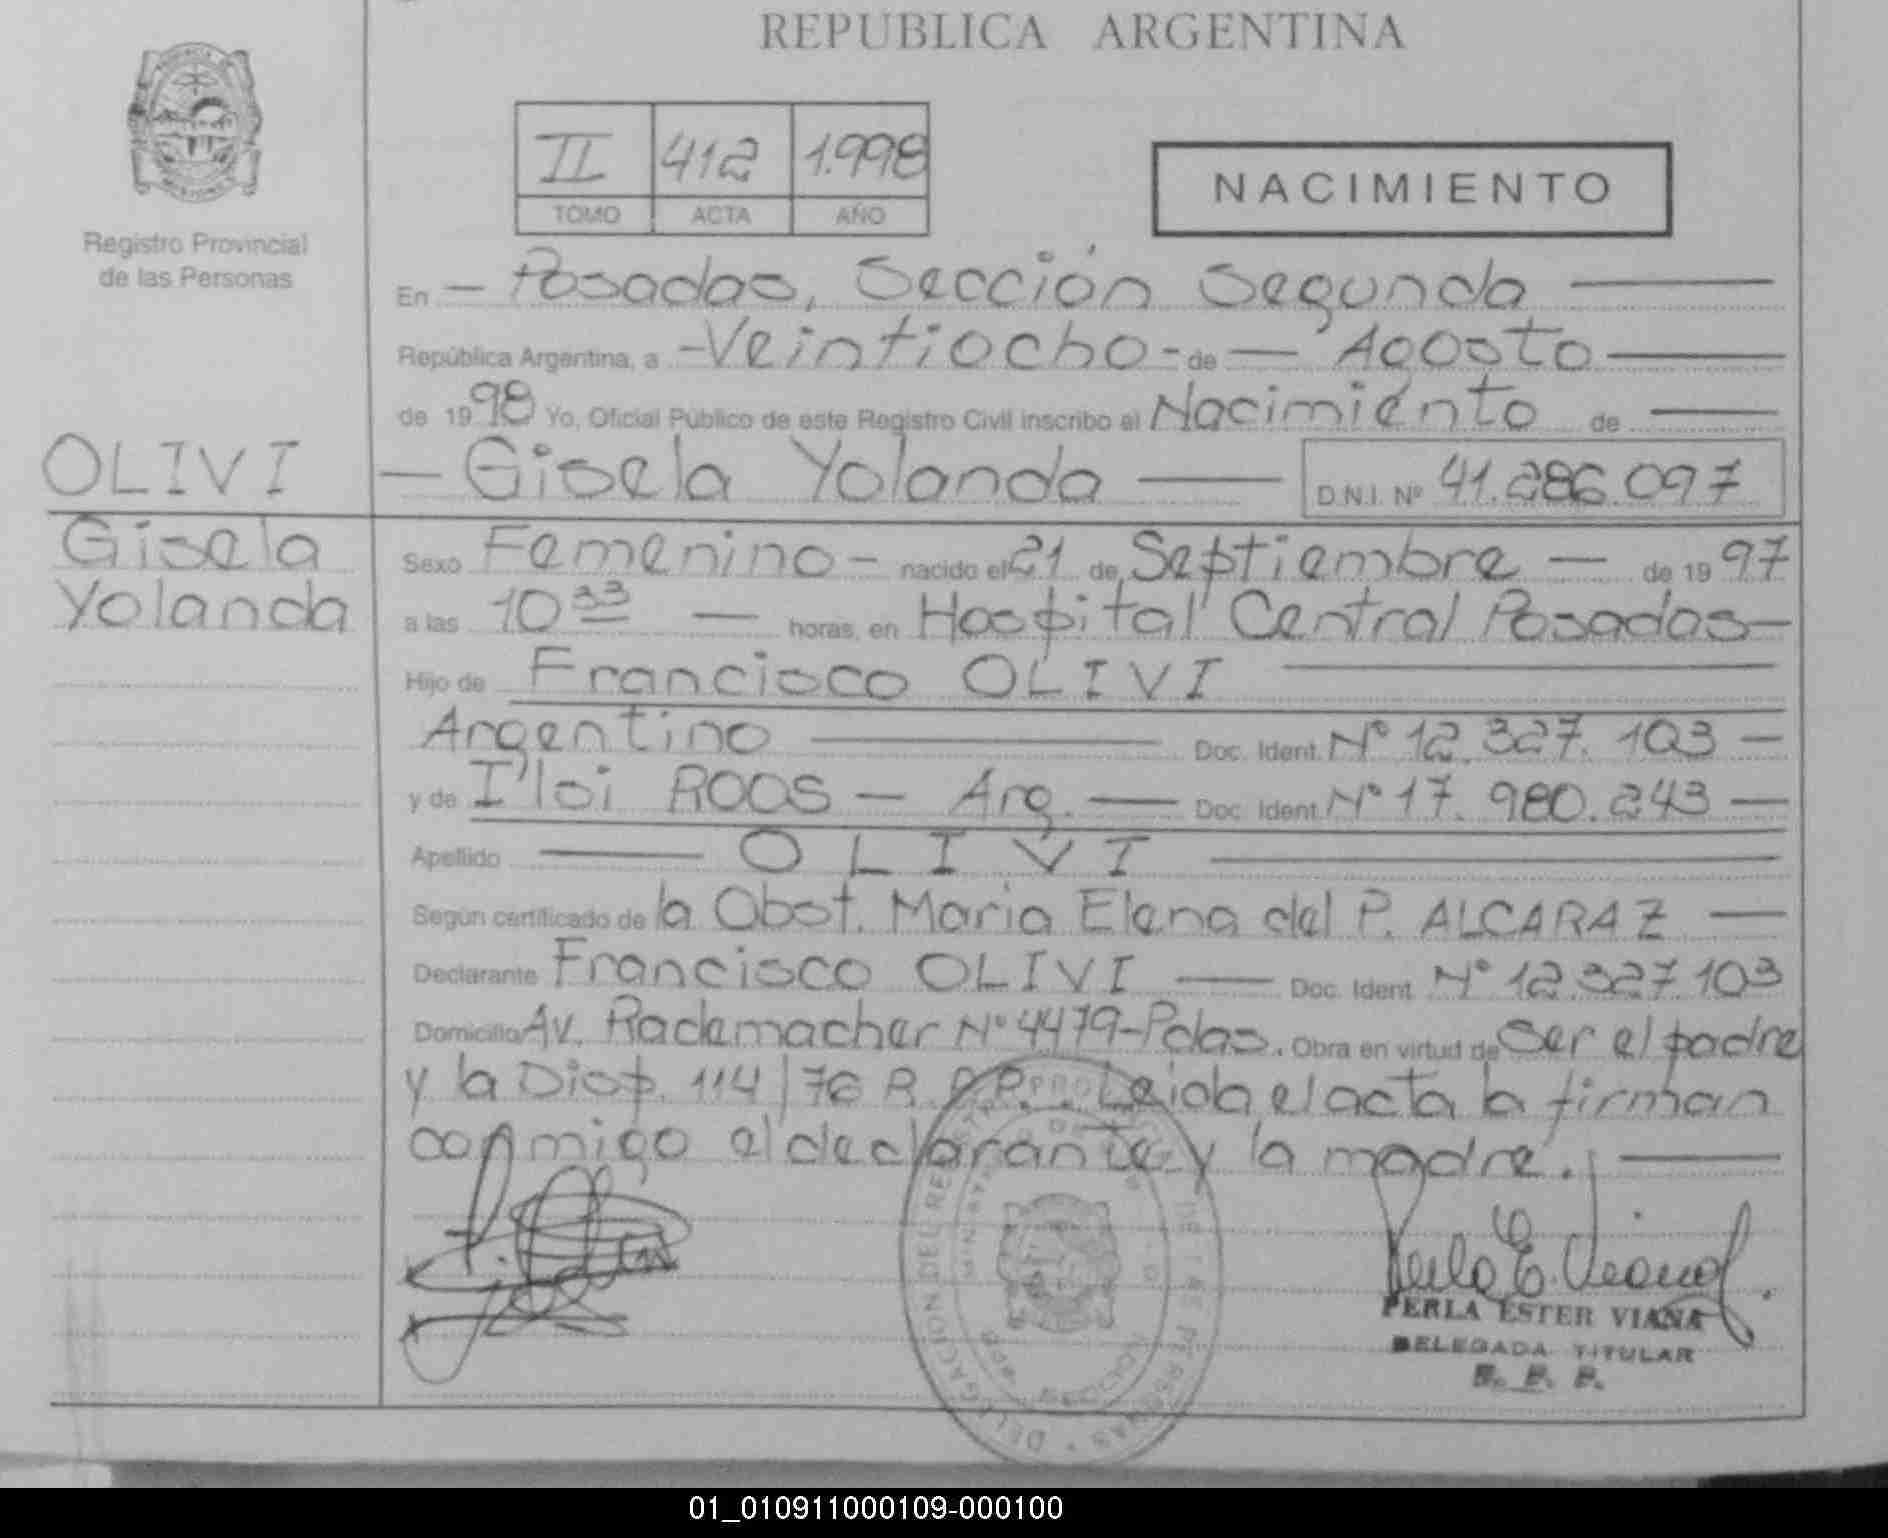 REPUBLICA ARGENTINA
Registro Provincial
de las Personas
II 412 1.998
TOMO ACTA AÑO
NACIMIENTO
En - Posadas, Sección Segunda
República Argentina, a - Veintiocho - de - Agosto
de 1998 Yo, Oficial Público de este Registro Civil inscribo el Nacimiento de
OLIVI
- Gisela Yolanda - D.N.I. Nº 41.286.097
Gisela
Yolanda
Sexo Femenino - nacido el 21 de Septiembre - de 1997
a las 10 33 - horas, en Hospital Central Posadas -
Hijo de Francisco OLIVI
Argentino - Doc. Ident. Nº 12.327.103 -
y de I'loi ROOS - Arg. - Doc. Ident. Nº 17.980.243 -
Apellido - OLIVI
Según certificado de la Obst. Maria Elena del P. ALCARAZ -
Declarante Francisco OLIVI - Doc. Ident. Nº 12.327.103
Domicilio Av. Rademacher Nº 4479-Pdas. Obra en virtud de Ser el padre
y la Disp. 114/76 R.P.P. Leida el acta la firman
conmigo el declarante y la madre.
Perla E. Viana
PERLA ESTER VIANA
DELEGADA TITULAR
R. P. P.
DELEGACION DEL REGISTRO PROVINCIAL DE LAS PERSONAS
01_010911000109-000100